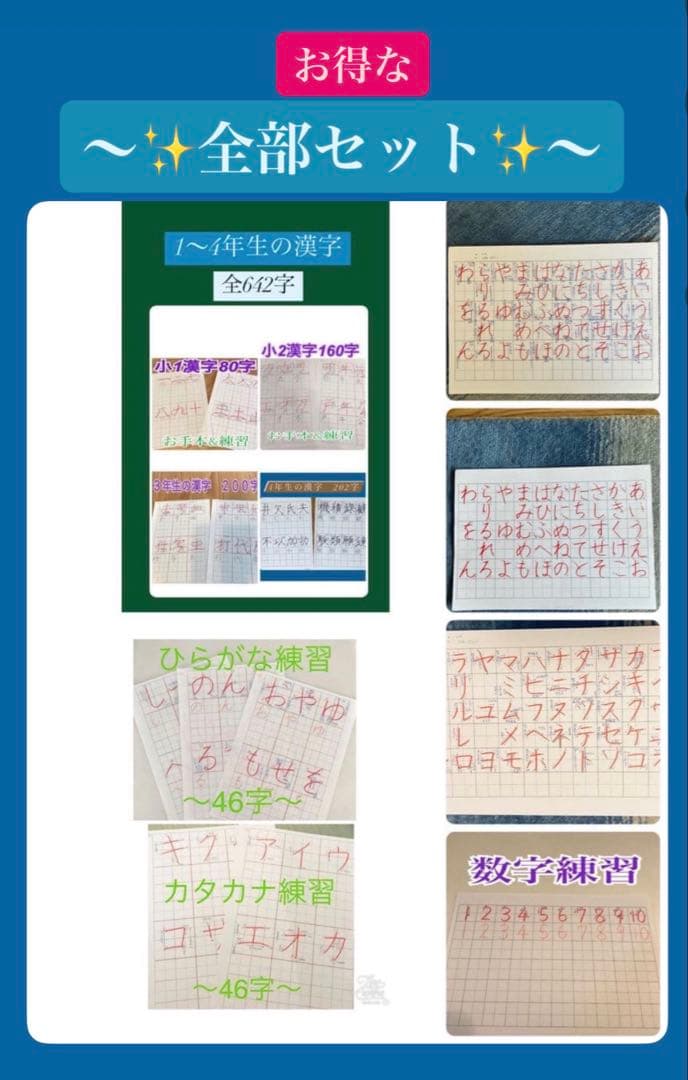 お得な
～✨全部セット✨～
1～4年生の漢字
全642字
小1漢字80字
お手本&練習
小2漢字160字
お手本&練習
3年生の漢字 200字
4年生の漢字 202字
八九十
井欠氏夫
機積録
不以加功
験類願
ひらがな練習
しのん
おやゆ
る
もせを
～46字～
キク
アイウ
カタカナ練習
コ
エオカ
～46字～
わらやまはなたさかあ
りみひにちしきい
をるゆむふぬつすくう
れめへねてせけえ
んろよもほのとそこお
わらやまはなたさかあ
りみひにちしきい
をるゆむふぬつすくう
れめへねてせけえ
んろよもほのとそこお
ラヤマハナタサカ
リミヒニチシキ
ルユムフヌツスク
レメヘネテセケ
ロヨモホノトソコ
数字練習
1 2 3 4 5 6 7 8 9 10
1 2 3 4 5 6 7 8 9 10